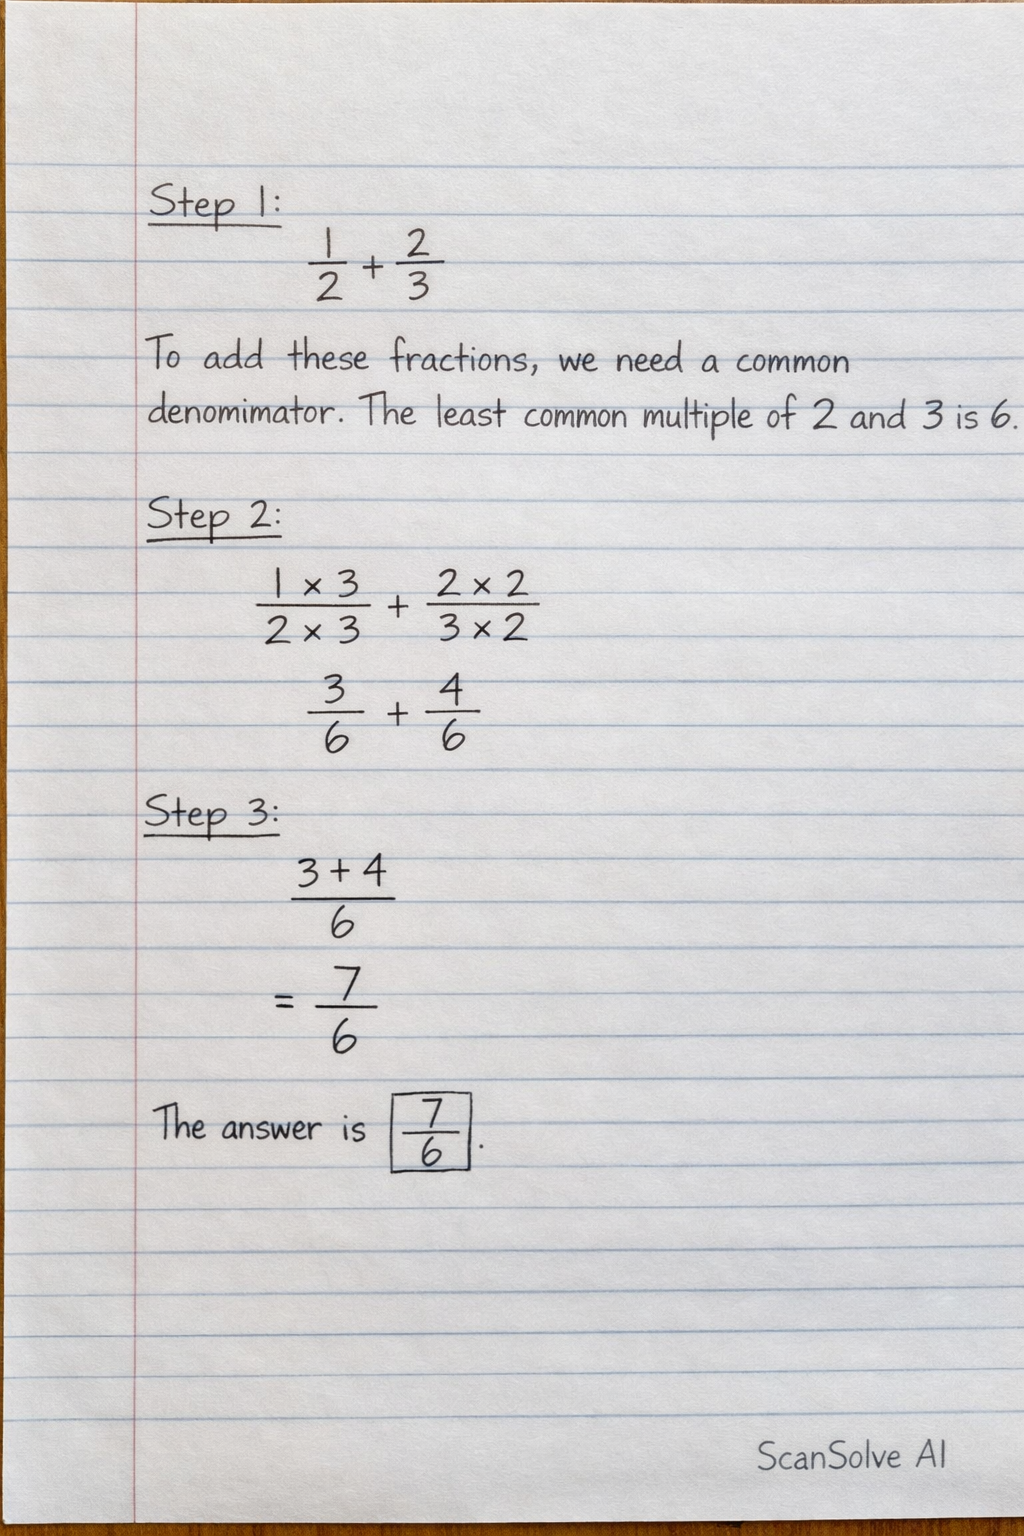 Step 1:
1/2 + 2/3
To add these fractions, we need a common
denomimator. The least common multiple of 2 and 3 is 6.
Step 2:
1 × 3/2 × 3 + 2 × 2/3 × 2
3/6 + 4/6
Step 3:
3 + 4/6
= 7/6
The answer is 7/6.
ScanSolve AI